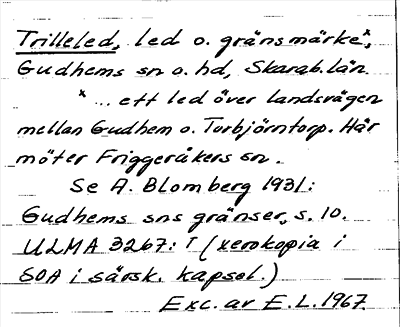 Trilleled, led o. gränsmärkeˣ,
Gudhems sn o. hd, Skarab. län.
ˣ ... ett led över landsvägen
mellan Gudhem o. Torbjörntorp. Här
möter Friggeråkers sn.
Se A. Blomberg 1931:
Gudhems sns gränser, s. 10.
ULMA 3267:1 (xerokopia i
SOA i särsk. kapsel.)
Exc. av E.L. 1967.